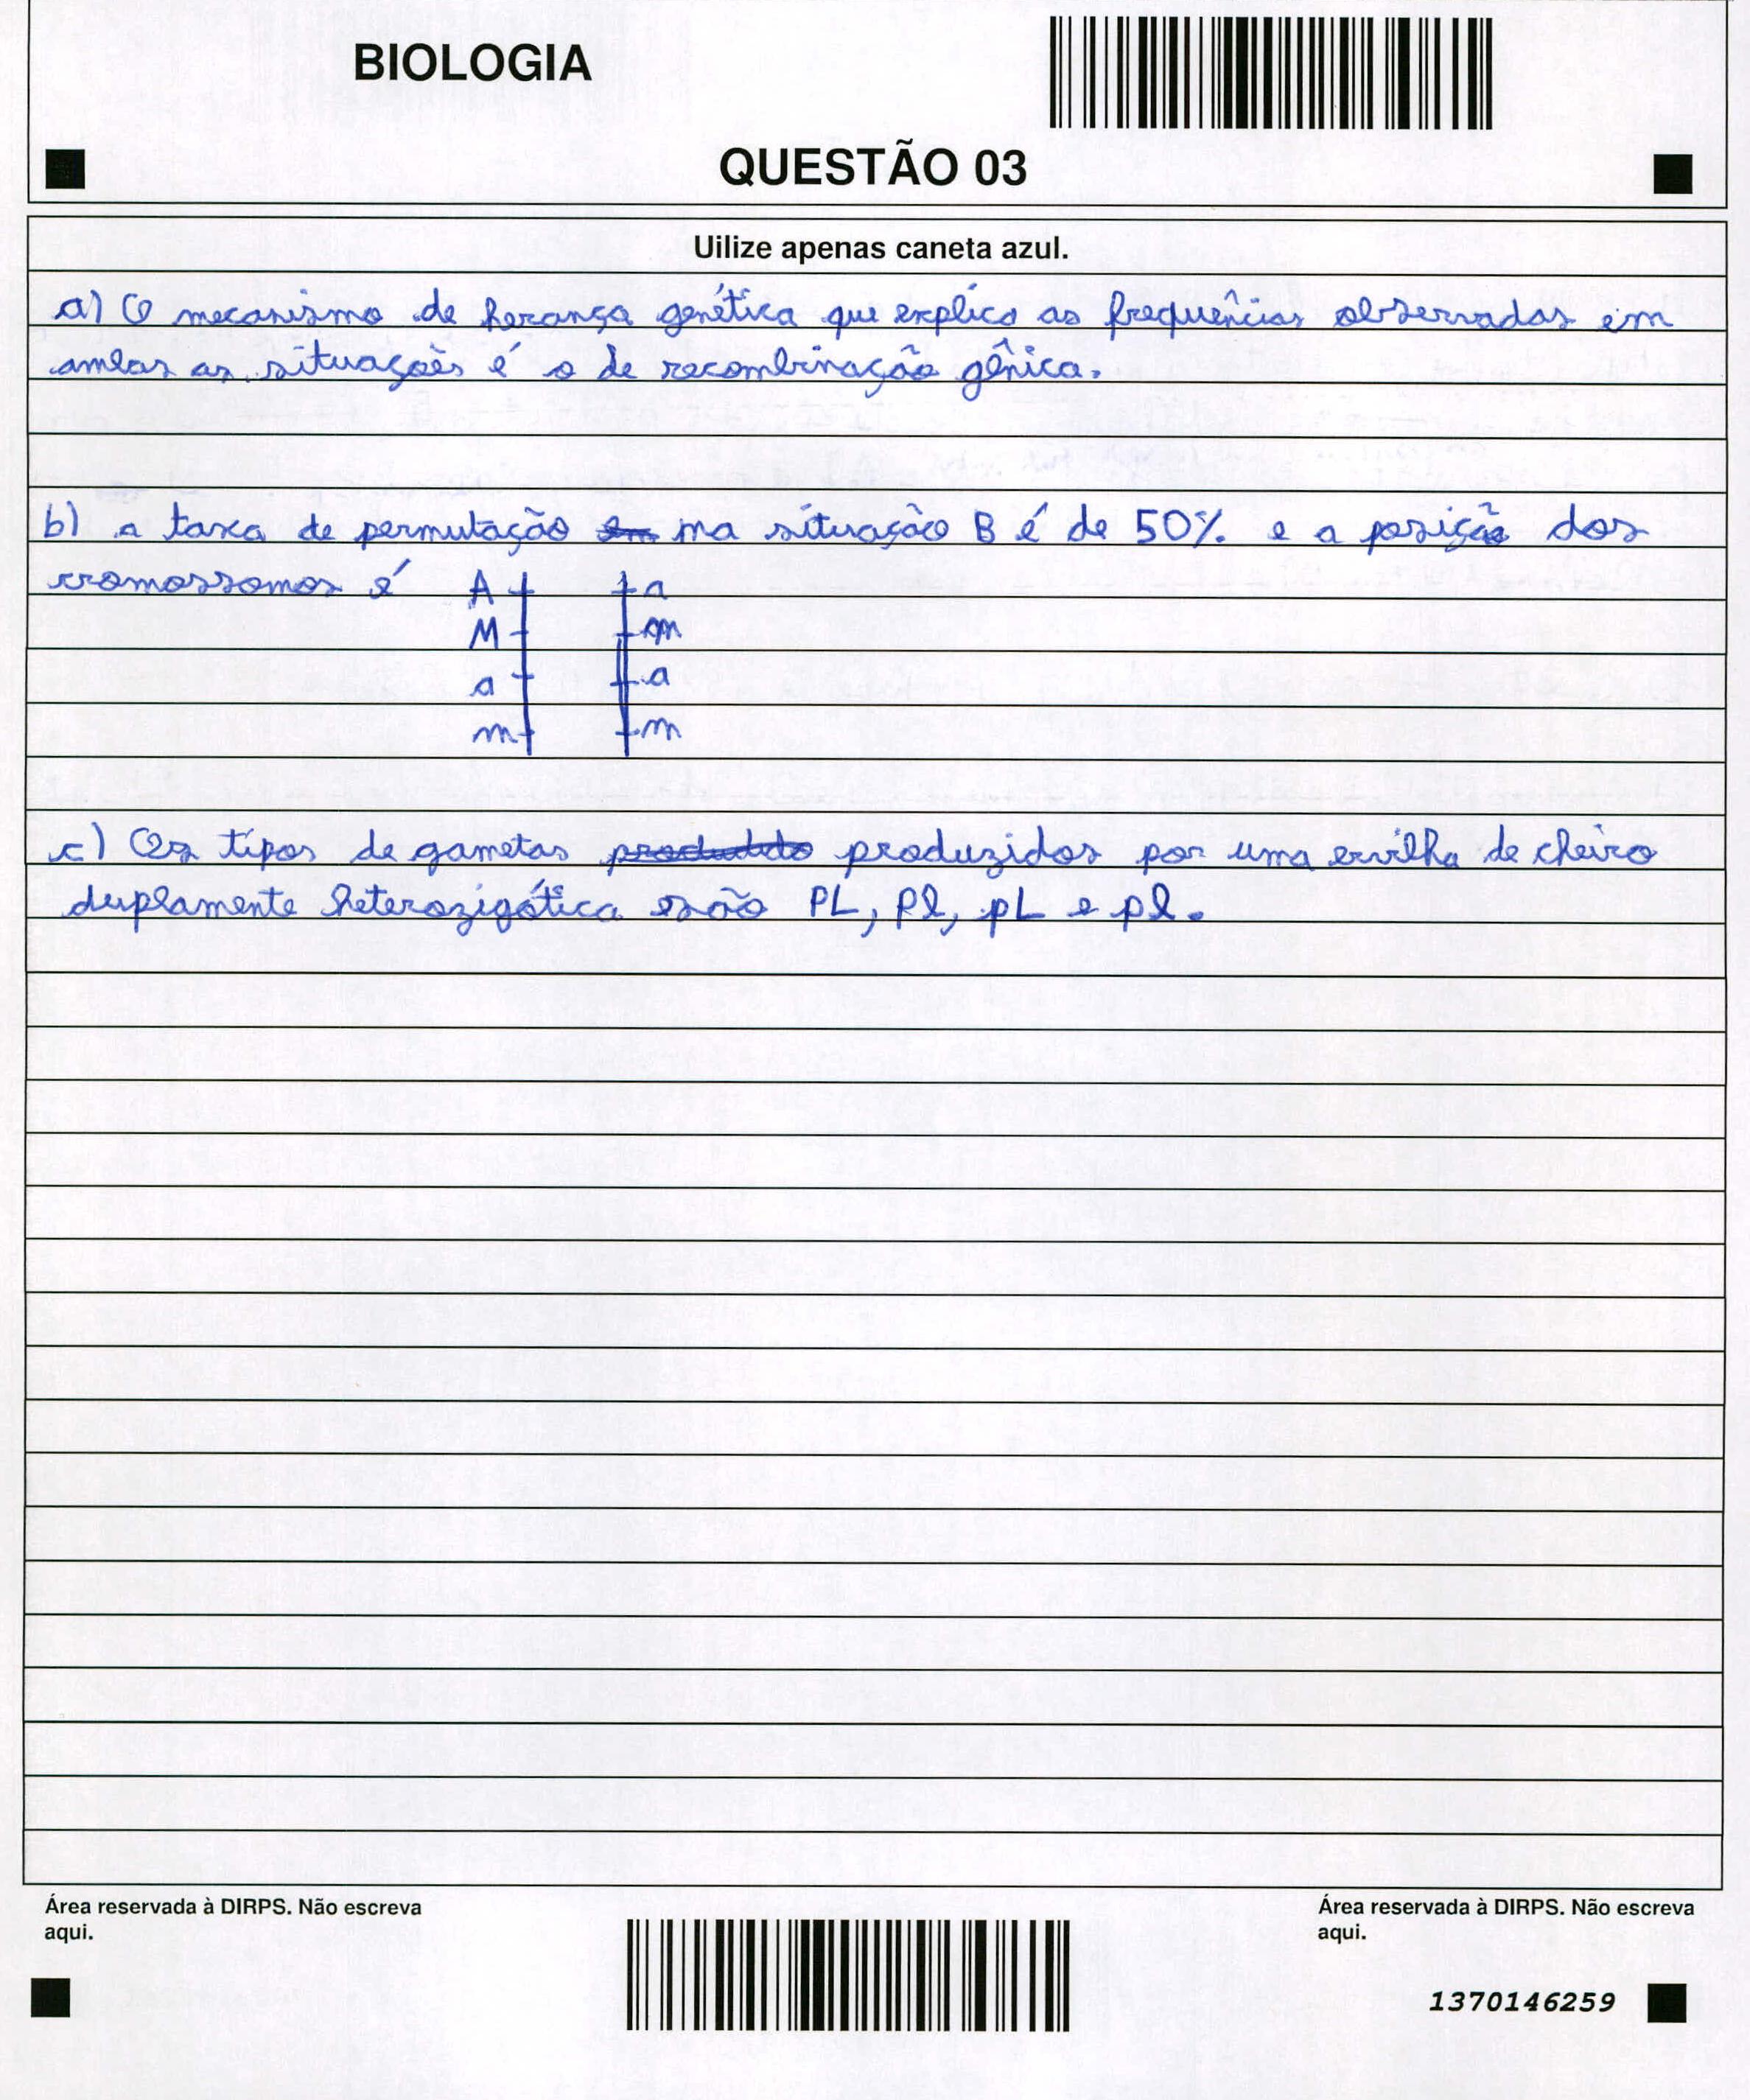 BIOLOGIA
QUESTÃO 03
Uilize apenas caneta azul.
a) O mecanismo de herança genética que explica as frequências observadas em
ambas as situações é o de recombinação gênica.
b) a taxa de permutação em na situação B é de 50% e a posição dos
cromossomos é A a
M m
a a
m m
c) Os tipos de gametas produzidos por uma ervilha de cheiro
duplamente heterozigótica são PL, Pl, pL e pl.
Área reservada à DIRPS. Não escreva
aqui.
Área reservada à DIRPS. Não escreva
aqui.
1370146259